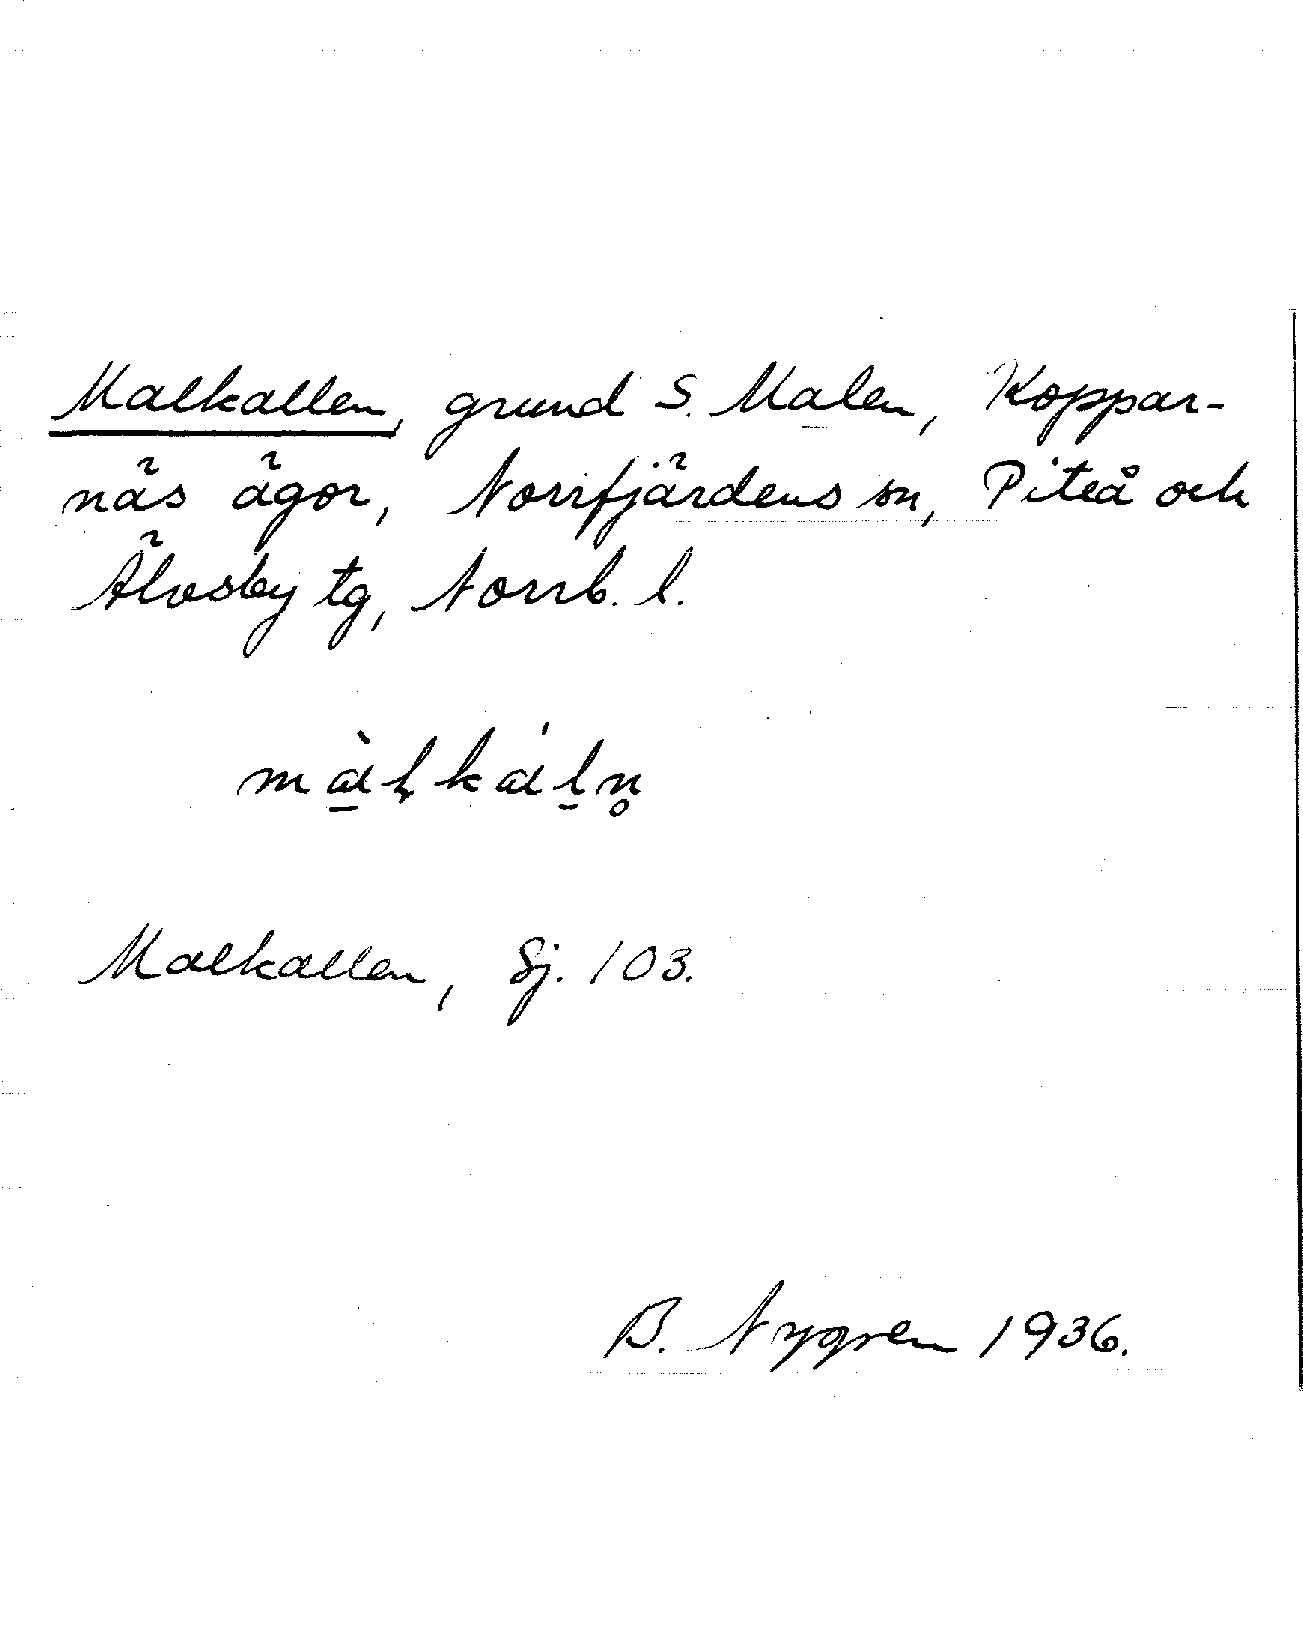 Malkallen, grund S. Malen, Koppar-
näs ägor, Norrfjärdens sn, Piteå och
Älvsby tg, Norrb. l.
Malkallen, Sj. 103.
B. Nygren 1936.